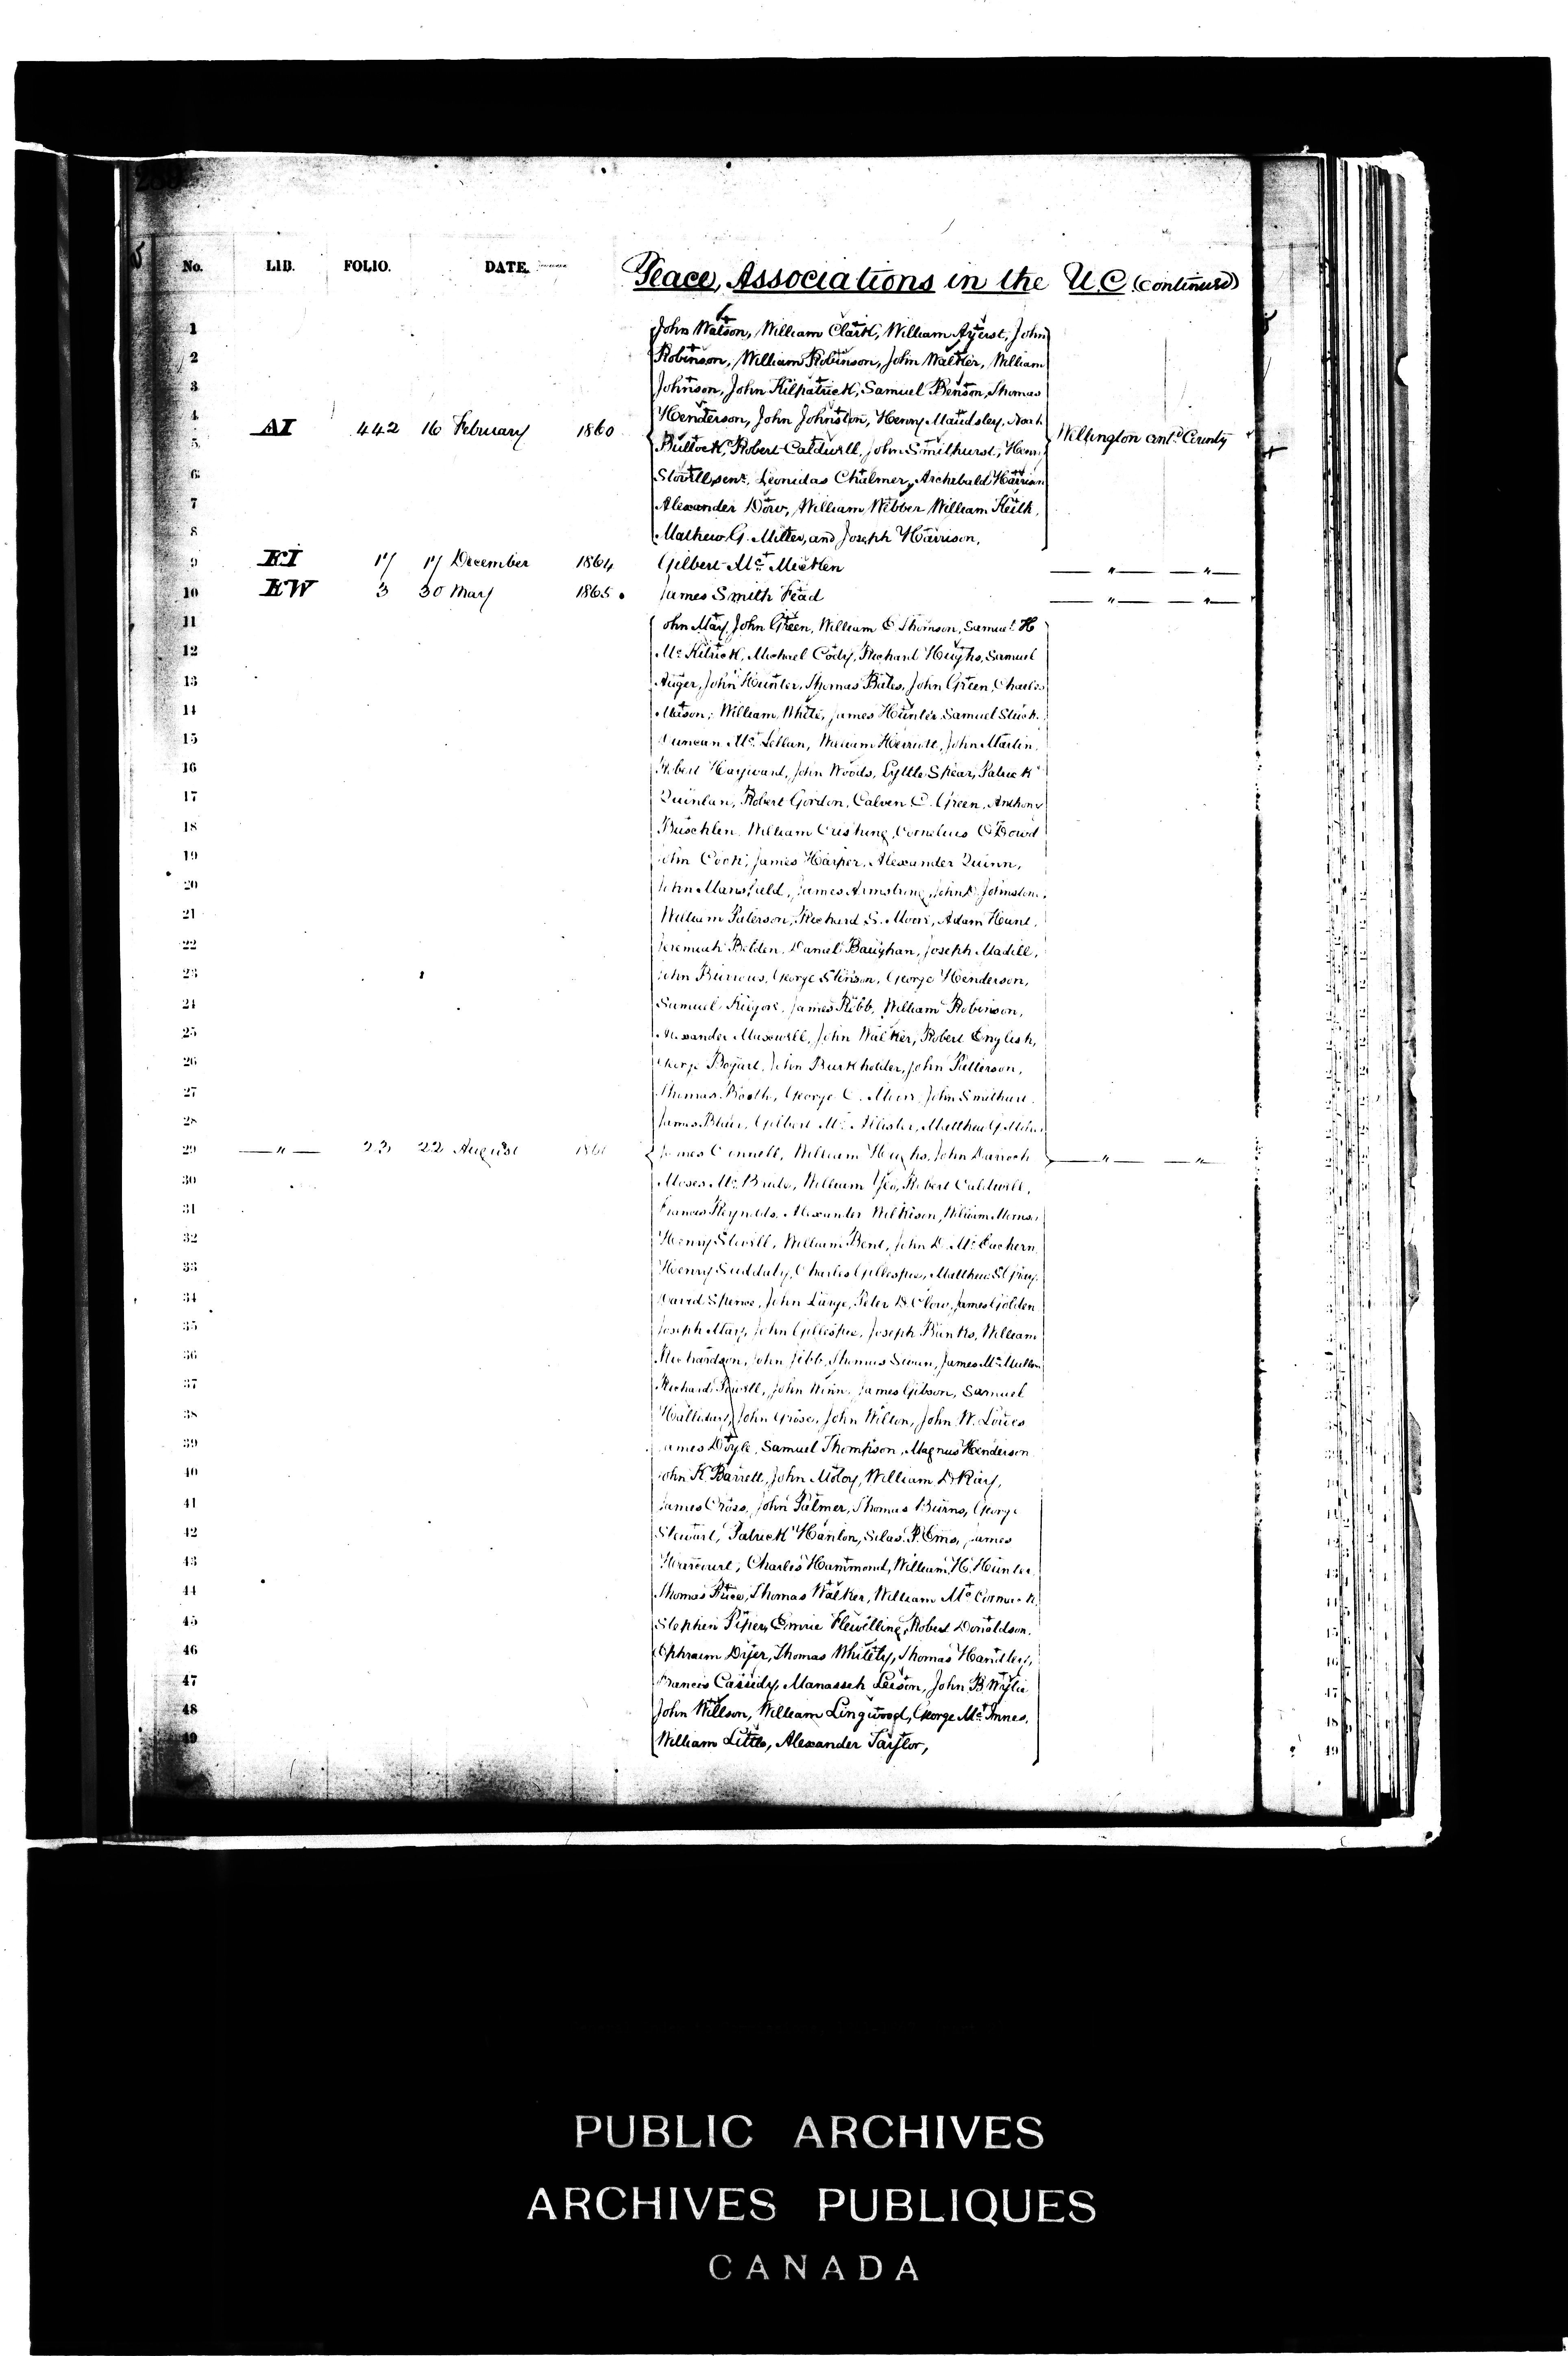 No. LIB. FOLIO. DATE. Peace, Associations in the U.C (continued)
1 John Watson, William Clark, William Ayerst, John
2 Robinson, William Robinson, John Walker, William
3 Johnson, John Kilpatrick, Samuel Benson, Thomas
4 Henderson, John Johnston, Henry Maudsley,
AI 442 16 February 1860 Wellington contd County
5 Bullock, Robert Caldwell, John Smithurst, Henry
6 Stovell, senr. Leonidas Chalmer, Archebald Harrison
7 Alexander Dow, William Webber William Keith,
8 Mathew G. Miller, and Joseph Harrison,
9 EI 17 17 December 1864 Gilbert Mc Micken — " — — " —
10 EW 3 30 May 1865. James Smith Fead — " — — " —
11 John May, John Green, William C. Thomson, Samuel H
12 Mc Kitrick, Michael Cody, Richard Hughs, Samuel
13 Auger, John Hunter, Thomas Bates, John Green, Charles
14 Mason, William White, James Hunter Samuel Stuck.
15 Duncan Mc Lellan, William Herriott, John Martin.
16 Robert Hayward, John Woods, Lyttle Spear, Patrick
17 Quinlan, Robert Gordon, Calven C. Green, Anthony
18 Buschlen, William Cushing, Cornelius O'Dowd
19 John Cook, James Harper, Alexander Quinn,
20 John Mansfield, James Armstrong, John D. Johnston.
21 William Paterson, Richard S. Moore, Adam Hunt,
22 Jeremiah Belden, Daniel Baughan, Joseph Madill,
23 John Burrows, George Stinson, George Henderson,
24 Samuel James Ribb, William Robinson,
25 Alexander Maxwell, John Walker, Robert English,
26 George Bogart, John Burkholder, John Patterson,
27 Thomas Booth, George C. John Smithurst
28 James Blair, Gilbert Mc Allister, Matthew G Miller
29 — " — 23 22 August James Connell, William Hughs, John Darroch — " — "
30 Moses Mc Bride, William Yeo, Robert Caldwell,
31 Francis Reynolds, Alexander Wilkison, William
32 Henry Stovell, William Bent, John D. Mc Eachern
33 Henry Suddaby, Charles Gillespie, Matthew
34 David Spence, John Large, Peter B. Clow, James Golden
35 Joseph May, John Gillespie, Joseph Bunks, William
36 Richardson, John Jibb, Thomas Swan, James Mc Mullen
37 Richard Powell, John Winn, James Gibson, Samuel
38 Halliday, John Grose, John Wilson, John W. Loues
39 James Doyle, Samuel Thompson, Magnus Henderson
40 John K. Barrett, John Moloy, William D Ray,
41 James Cross, John Palmer, Thomas Burns, George
42 Stewart, Patrick Hanlon, Silas P. Ems, James
43 Harcourt, Charles Hammond, William H. Hunter
44 Thomas Rice, Thomas Walker, William Mc Cormack
45 Stephen Piper, Emrie Flewelling, Robert Donaldson.
46 Ephraim Dyer, Thomas Whitely, Thomas Handley,
47 Francis Cassidy, Manasseh Leeson, John B. Wylie
48 John Willson, William Lingwood, George Mc Innes,
49 William Little, Alexander Taylor,
PUBLIC ARCHIVES
ARCHIVES PUBLIQUES
CANADA